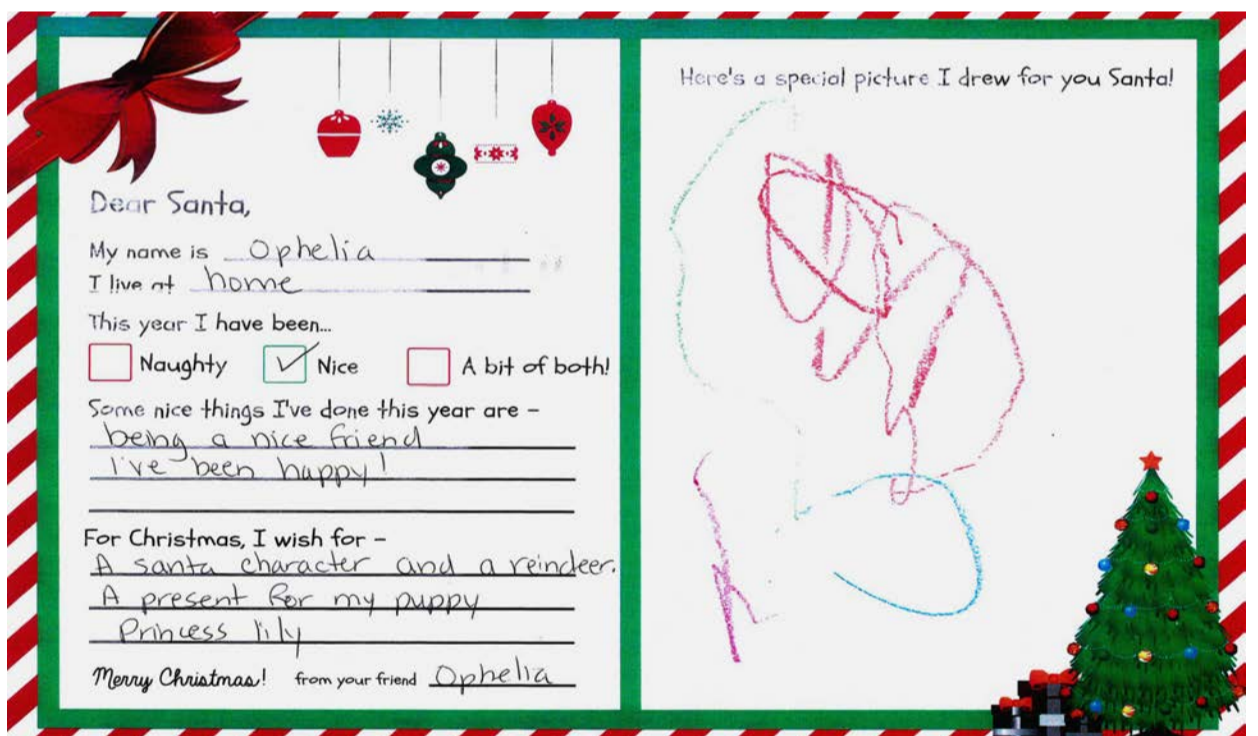 Dear Santa,
My name is Ophelia
I live at home
This year I have been...
Naughty Nice A bit of both!
Some nice things I've done this year are –
being a nice friend
I've been happy!
For Christmas, I wish for –
A santa character and a reindeer.
A present for my puppy
Princess lily
Merry Christmas! from your friend Ophelia
Here's a special picture I drew for you Santa!